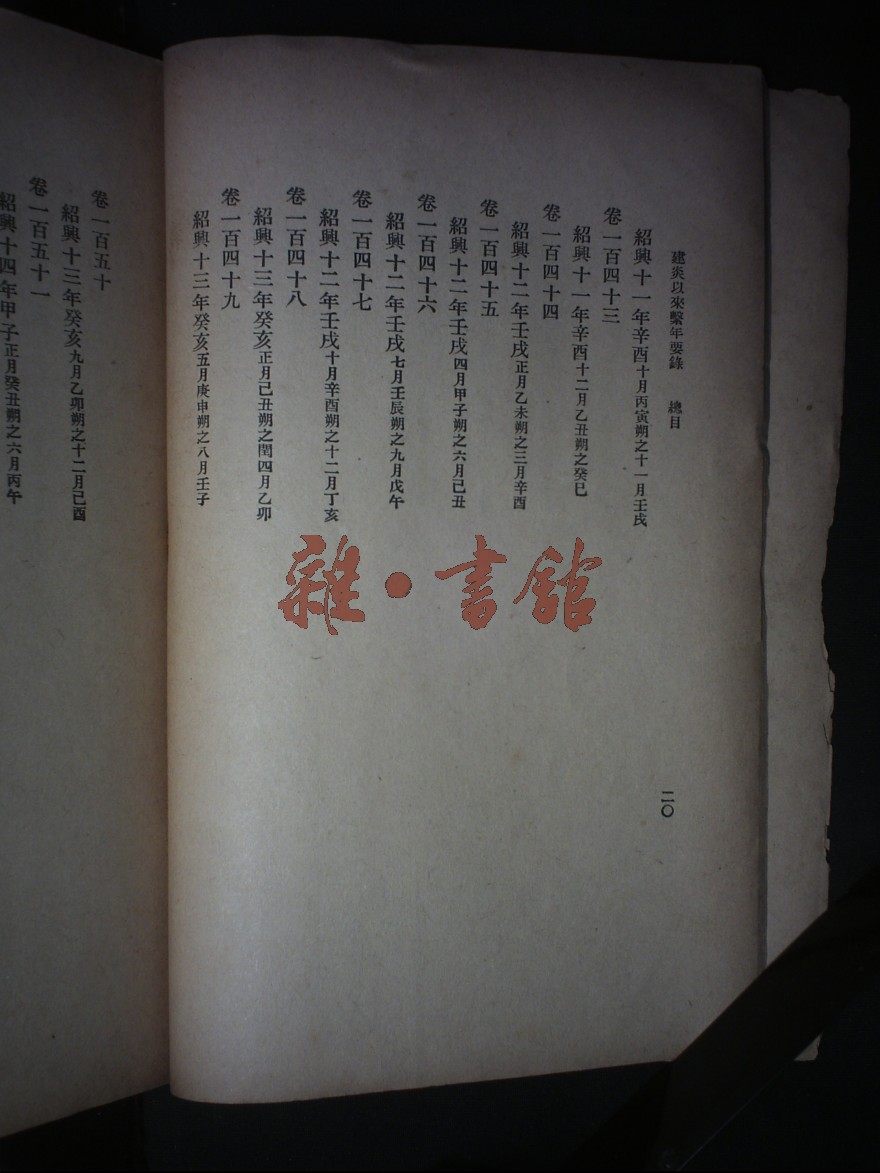 建炎以來繫年要錄 總目
二〇
紹興十一年辛酉十月丙寅朔之十一月壬戌
卷一百四十三
紹興十一年辛酉十二月乙丑朔之癸巳
卷一百四十四
紹興十二年壬戌正月乙未朔之三月辛酉
卷一百四十五
紹興十二年壬戌四月甲子朔之六月己丑
卷一百四十六
紹興十二年壬戌七月壬辰朔之九月戊午
卷一百四十七
紹興十二年壬戌十月辛酉朔之十二月丁亥
卷一百四十八
紹興十三年癸亥正月己丑朔之閏四月乙卯
卷一百四十九
紹興十三年癸亥五月庚申朔之八月壬子
卷一百五十
紹興十三年癸亥九月乙卯朔之十二月己酉
卷一百五十一
紹興十四年甲子正月癸丑朔之六月丙午
雜·書館